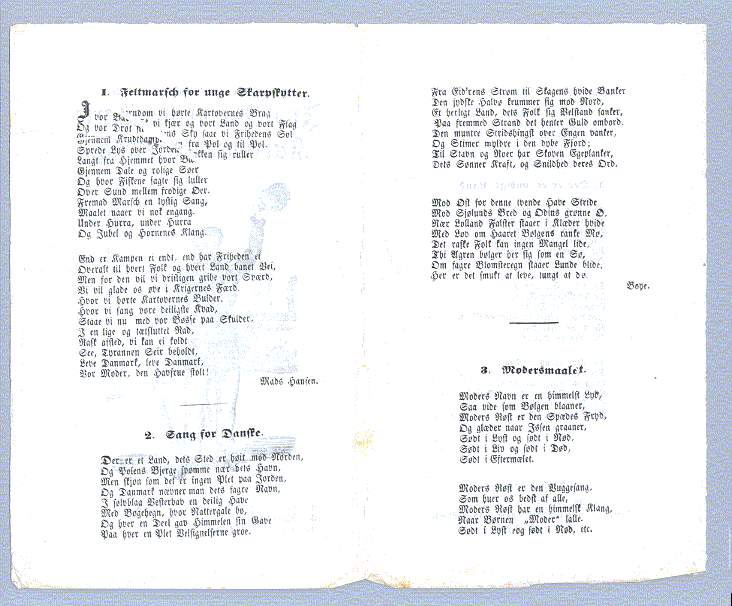 1. Feltmarsch for unge Skarpskytter.
vi hørte Kartovernes Brag
vi kjær og vort Land og vort Flag
Og vor Drot
Gjennem Sky saa vi Frihedens Sol
fra Pol og til Pol.
Sprede Lys over Jorden
Langt fra Hjemmet hvor sig ruller
Gjennem Dale og rolige Søer
Og hvor Fiskene sagte sig luller
Over Sund mellem frodige Øer.
Fremad Marsch en lystig Sang,
Maalet naaer vi nok engang.
Under Hurra, under Hurra
Og Jubel og Hornenes Klang.
End er Kampen ei endt, end har Friheden ei
Overalt til hvert Folk og hvert Land banet Vei,
Men for den vil vi dristigen gribe vort Sværd,
Vi vil glade os øve i Krigernes Færd.
Hvor vi hørte Kartovernes Bulder,
Hvor vi sang vore deiligste Kvad,
Staae vi nu med vor Bøsse paa Skulder,
I en lige og tætsluttet Rad,
Rask afsted, vi kan ei koldt
See, Tyrannen Seir beholdt,
Leve Danmark, leve Danmark,
Vor Moder, den Havfrue stolt!
Mads Hansen.
2. Sang for Danske.
Der er et Land, dets Sted er høit mod Norden,
Og Polens Bjerge svømme nær dets Havn,
Men skjøn som det er ingen Plet paa Jorden,
Og Danmark nævner man dets fagre Navn,
I sølvblaa Vesterhav en deilig Have
Med Bøgehegn, hvor Nattergale bo,
Og hver en Deel gav Himmelen sin Gave
Paa hver en Plet Velsignelserne groe.
Fra Eid'rens Strøm til Skagens hvide Banker
Den jydske Halvø krummer sig mod Nord,
Et herligt Land, dets Folk sig Velstand sanker,
Paa fremmed Strand det henter Guld ombord.
Den muntre Stridshingst over Engen vanker,
Og Stimer myldre i den dybe Fjord;
Til Stavn og Roer har Skoven Egeplanker,
Dets Sønner Kraft, og Snildhed deres Ord.
Mod Øst for denne tvende Have Stride
Mod Sjølunds Bred og Odins grønne Ø,
Nær Lolland Falster staaer i Klæder hvide
Med Løv om Haaret Bølgens ranke Mø,
Det raske Folk kan ingen Mangel lide,
Thi Agren bølger her sig som en Sø,
Om fagre Blomsteregn staaer Lunde blide,
Her er det smukt at leve, tungt at dø.
Boye.
3. Modersmaalet.
Moders Navn er en himmelsk Lyd,
Saa vide som Bølgen blaaner,
Moders Røst er den Spædes Fryd,
Og glæder naar Issen graaner,
Sødt i Lyst og sødt i Nød,
Sødt i Liv og sødt i Død,
Sødt i Eftermælet.
Moders Røst er den Vuggesang,
Som huer os bedst af alle,
Moders Røst har en himmelsk Klang,
Naar Børnen „Moder" lalle.
Sødt i Lyst og sødt i Nød, etc.